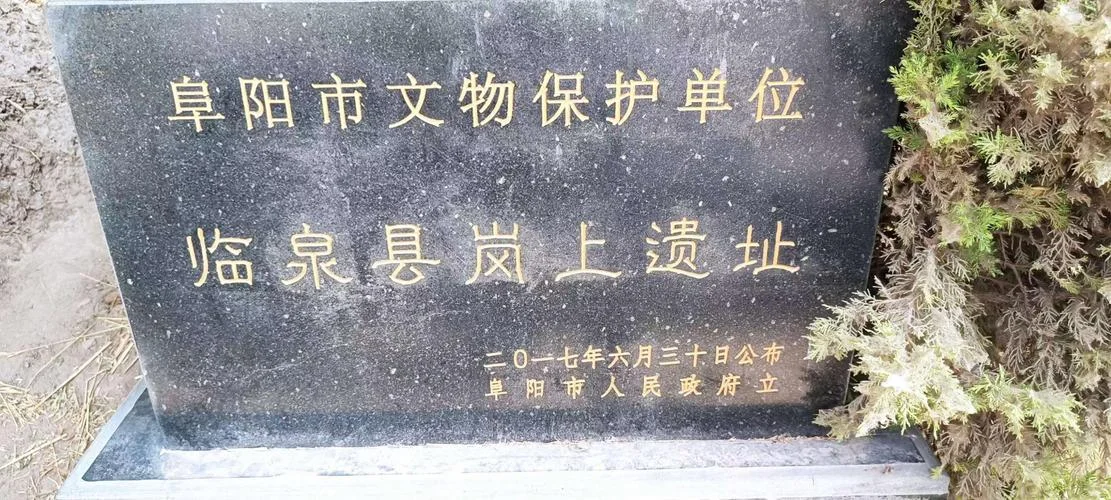 阜阳市文物保护单位
临泉县岗上遗址
二〇一七年六月三十日公布
阜阳市人民政府立